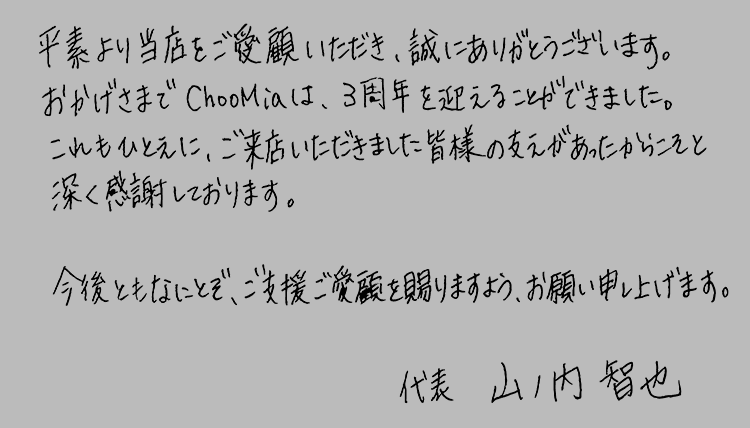 平素より当店をご愛顧いただき、誠にありがとうございます。
おかげさまで ChooMiaは、3周年を迎えることができました。
これもひとえに、ご来店いただきました皆様の支えがあったからこそと
深く感謝しております。
今後ともなにとぞ、ご支援ご愛顧を賜りますよう、お願い申し上げます。
代表 山ノ内 智也